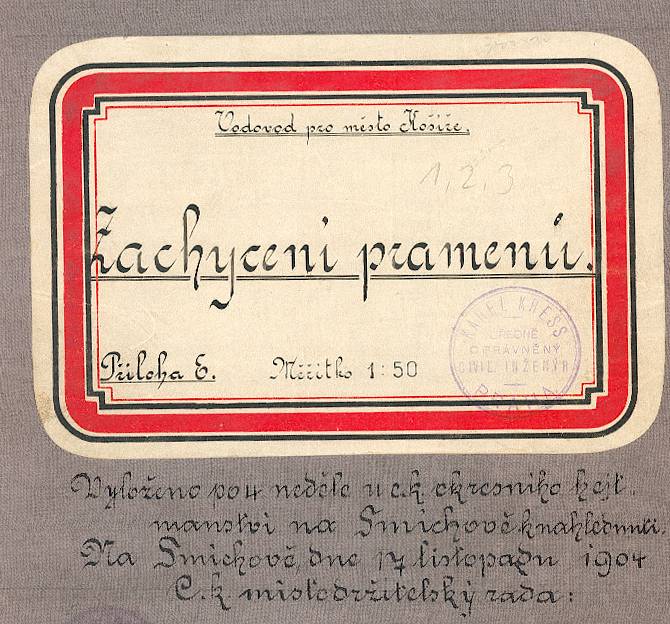 Vodovod pro město Košíře.
1, 2, 3
Zachycení pramenů.
Příloha E.
Měřítko 1:50
KAREL KRESS
ÚŘEDNĚ
OPRÁVNĚNÝ
CIVIL. INŽENÝR
PRAHA
Vyloženo po 4 neděle u c.k. okresního hejt-
manství na Smíchově k nahlédnutí.
Na Smíchově, dne 17 listopadu 1904
C. k. místodržitelský rada: